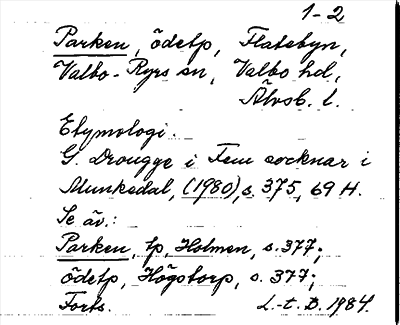 1-2
Parken, ödetp, Flatebyn,
Valbo-Ryrs sn, Valbo hd,
Älvsb. l.
Etymologi.
G. Drougge i Fem socknar i
Munkedal, (1980), s. 375, 69 H.
Se äv.:
Parken, tp, Holmen, s. 377;
ödetp, Högstorp, s. 377;
Forts. L.-t. D. 1984.